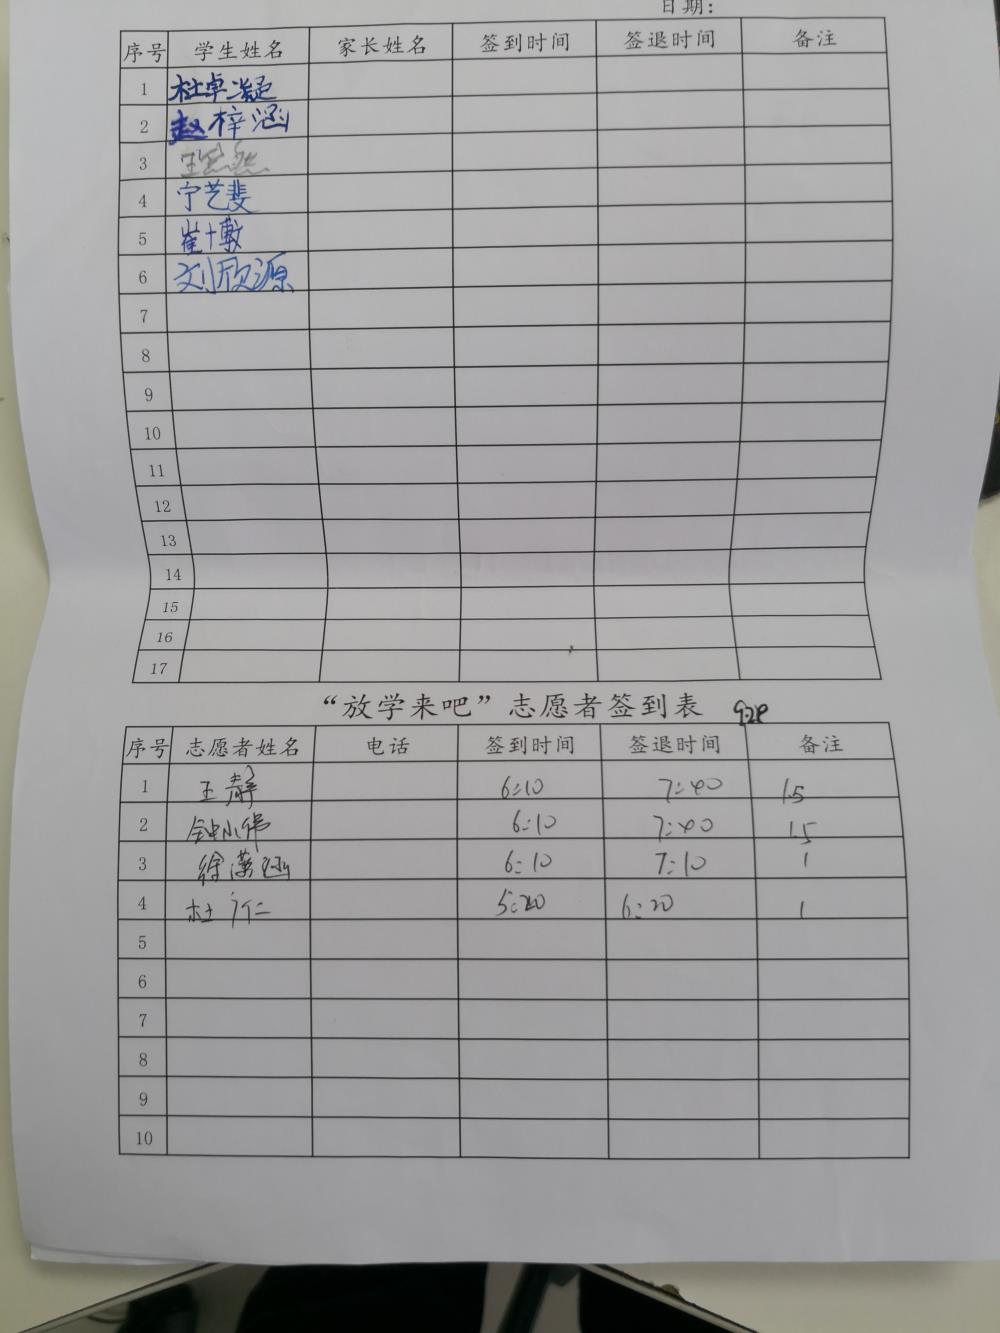 日期:
序号 学生姓名 家长姓名 签到时间 签退时间 备注
1 杜卓凝
2 赵梓涵
3 王悠然
4 宁艺斐
5 崔十敷
6 刘欣源
7
8
9
10
11
12
13
14
15
16
17
“放学来吧”志愿者签到表 9.28
序号 志愿者姓名 电话 签到时间 签退时间 备注
1 王静 6:10 7:40 1.5
2 钟小伟 6:10 7:40 1.5
3 徐潇涵 6:10 7:10 1
4 杜广仁 5:20 6:20 1
5
6
7
8
9
10